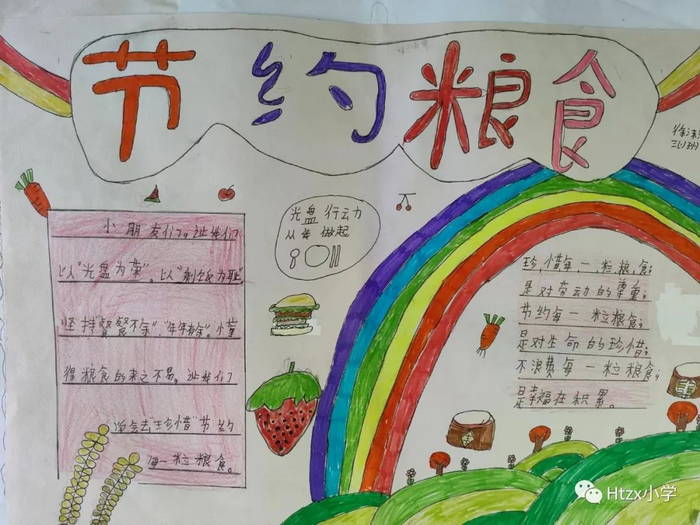 节约粮食
三(3)班
小朋友们,让我们
以"光盘为荣",以"剩饭为耻",
坚持"餐餐不余",懂
得粮食的来之不易。让我们
"珍惜"节约
每一粒粮食。
光盘行动力
从我做起
珍惜每一粒粮食;
是对劳动的尊重。
节约每一粒粮食;
是对生命的珍惜;
不浪费每一粒粮食;
是幸福在积累。
Htzx小学